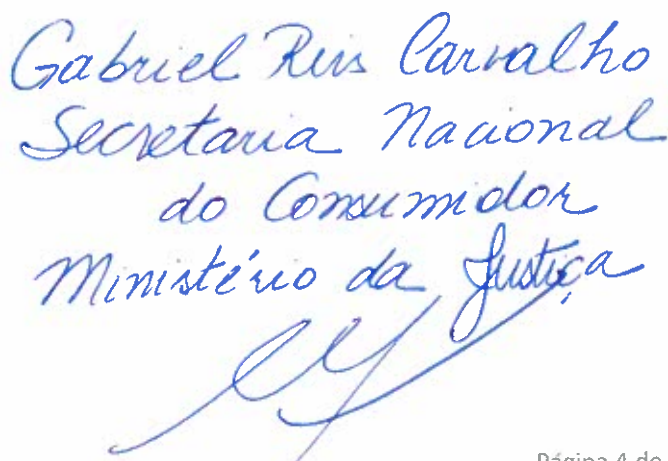 Gabriel Reis Carvalho
Secretaria Nacional
do Consumidor
Ministério da Justiça
Página 4 de